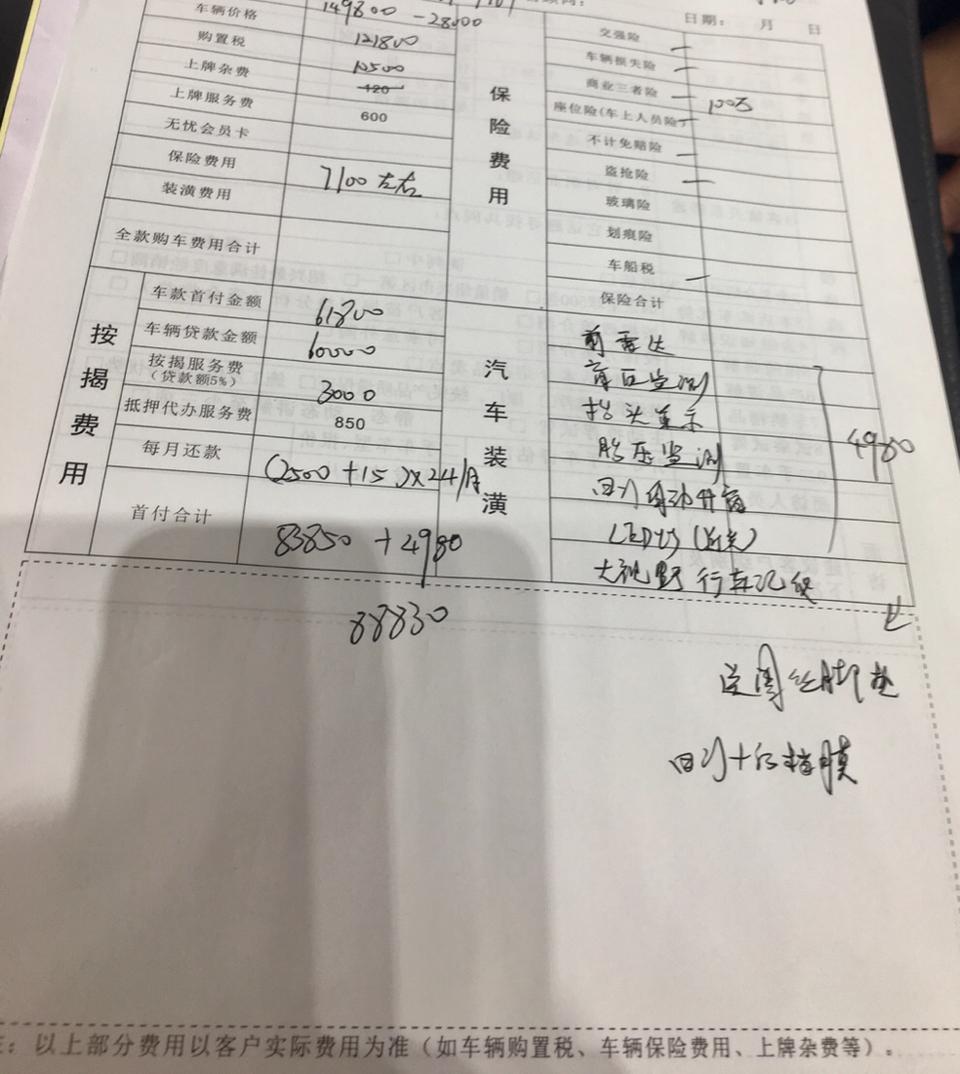 日期： 月 日
车辆价格 149800 -28000
121800
购置税 10500
上牌杂费 120
上牌服务费 600
无忧会员卡
保险费用 7100左右
装潢费用
全款购车费用合计
按揭费用
车款首付金额 61800
车辆贷款金额 60000
按揭服务费 3000
（贷款额5%）
抵押代办服务费 850
每月还款 (2500+15)×24/月
首付合计 83850 +4980
88830
保险费用
交强险
车辆损失险
商业三者险 100万
座位险(车上人员险)
不计免赔险
盗抢险
玻璃险
划痕险
车船税
保险合计
汽车装潢
前雷达
抬头显示
胎压监测
4980
LED灯(近光)
大视野行车记录
送圈丝脚垫
注：以上部分费用以客户实际费用为准（如车辆购置税、车辆保险费用、上牌杂费等）。